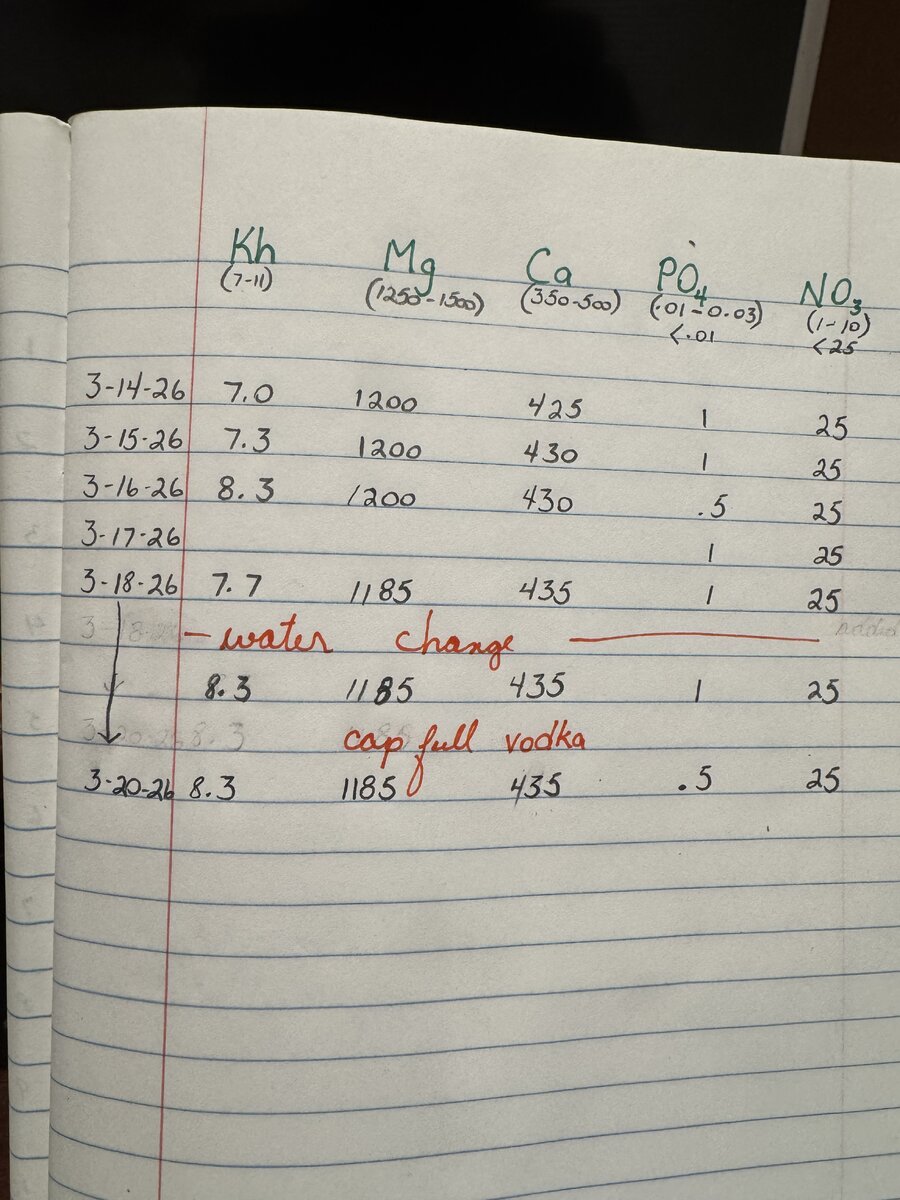 Kh Mg Ca PO4 NO3
(7-11) (1250-1500) (350-500) (.01-0.03) (1-10)
<.01 <25
3-14-26 7.0 1200 425 1 25
3-15-26 7.3 1200 430 1 25
3-16-26 8.3 1200 430 .5 25
3-17-26 1 25
3-18-26 7.7 1185 435 1 25
- water change
8.3 1185 435 1 25
cap full vodka
3-20-26 8.3 1185 435 .5 25